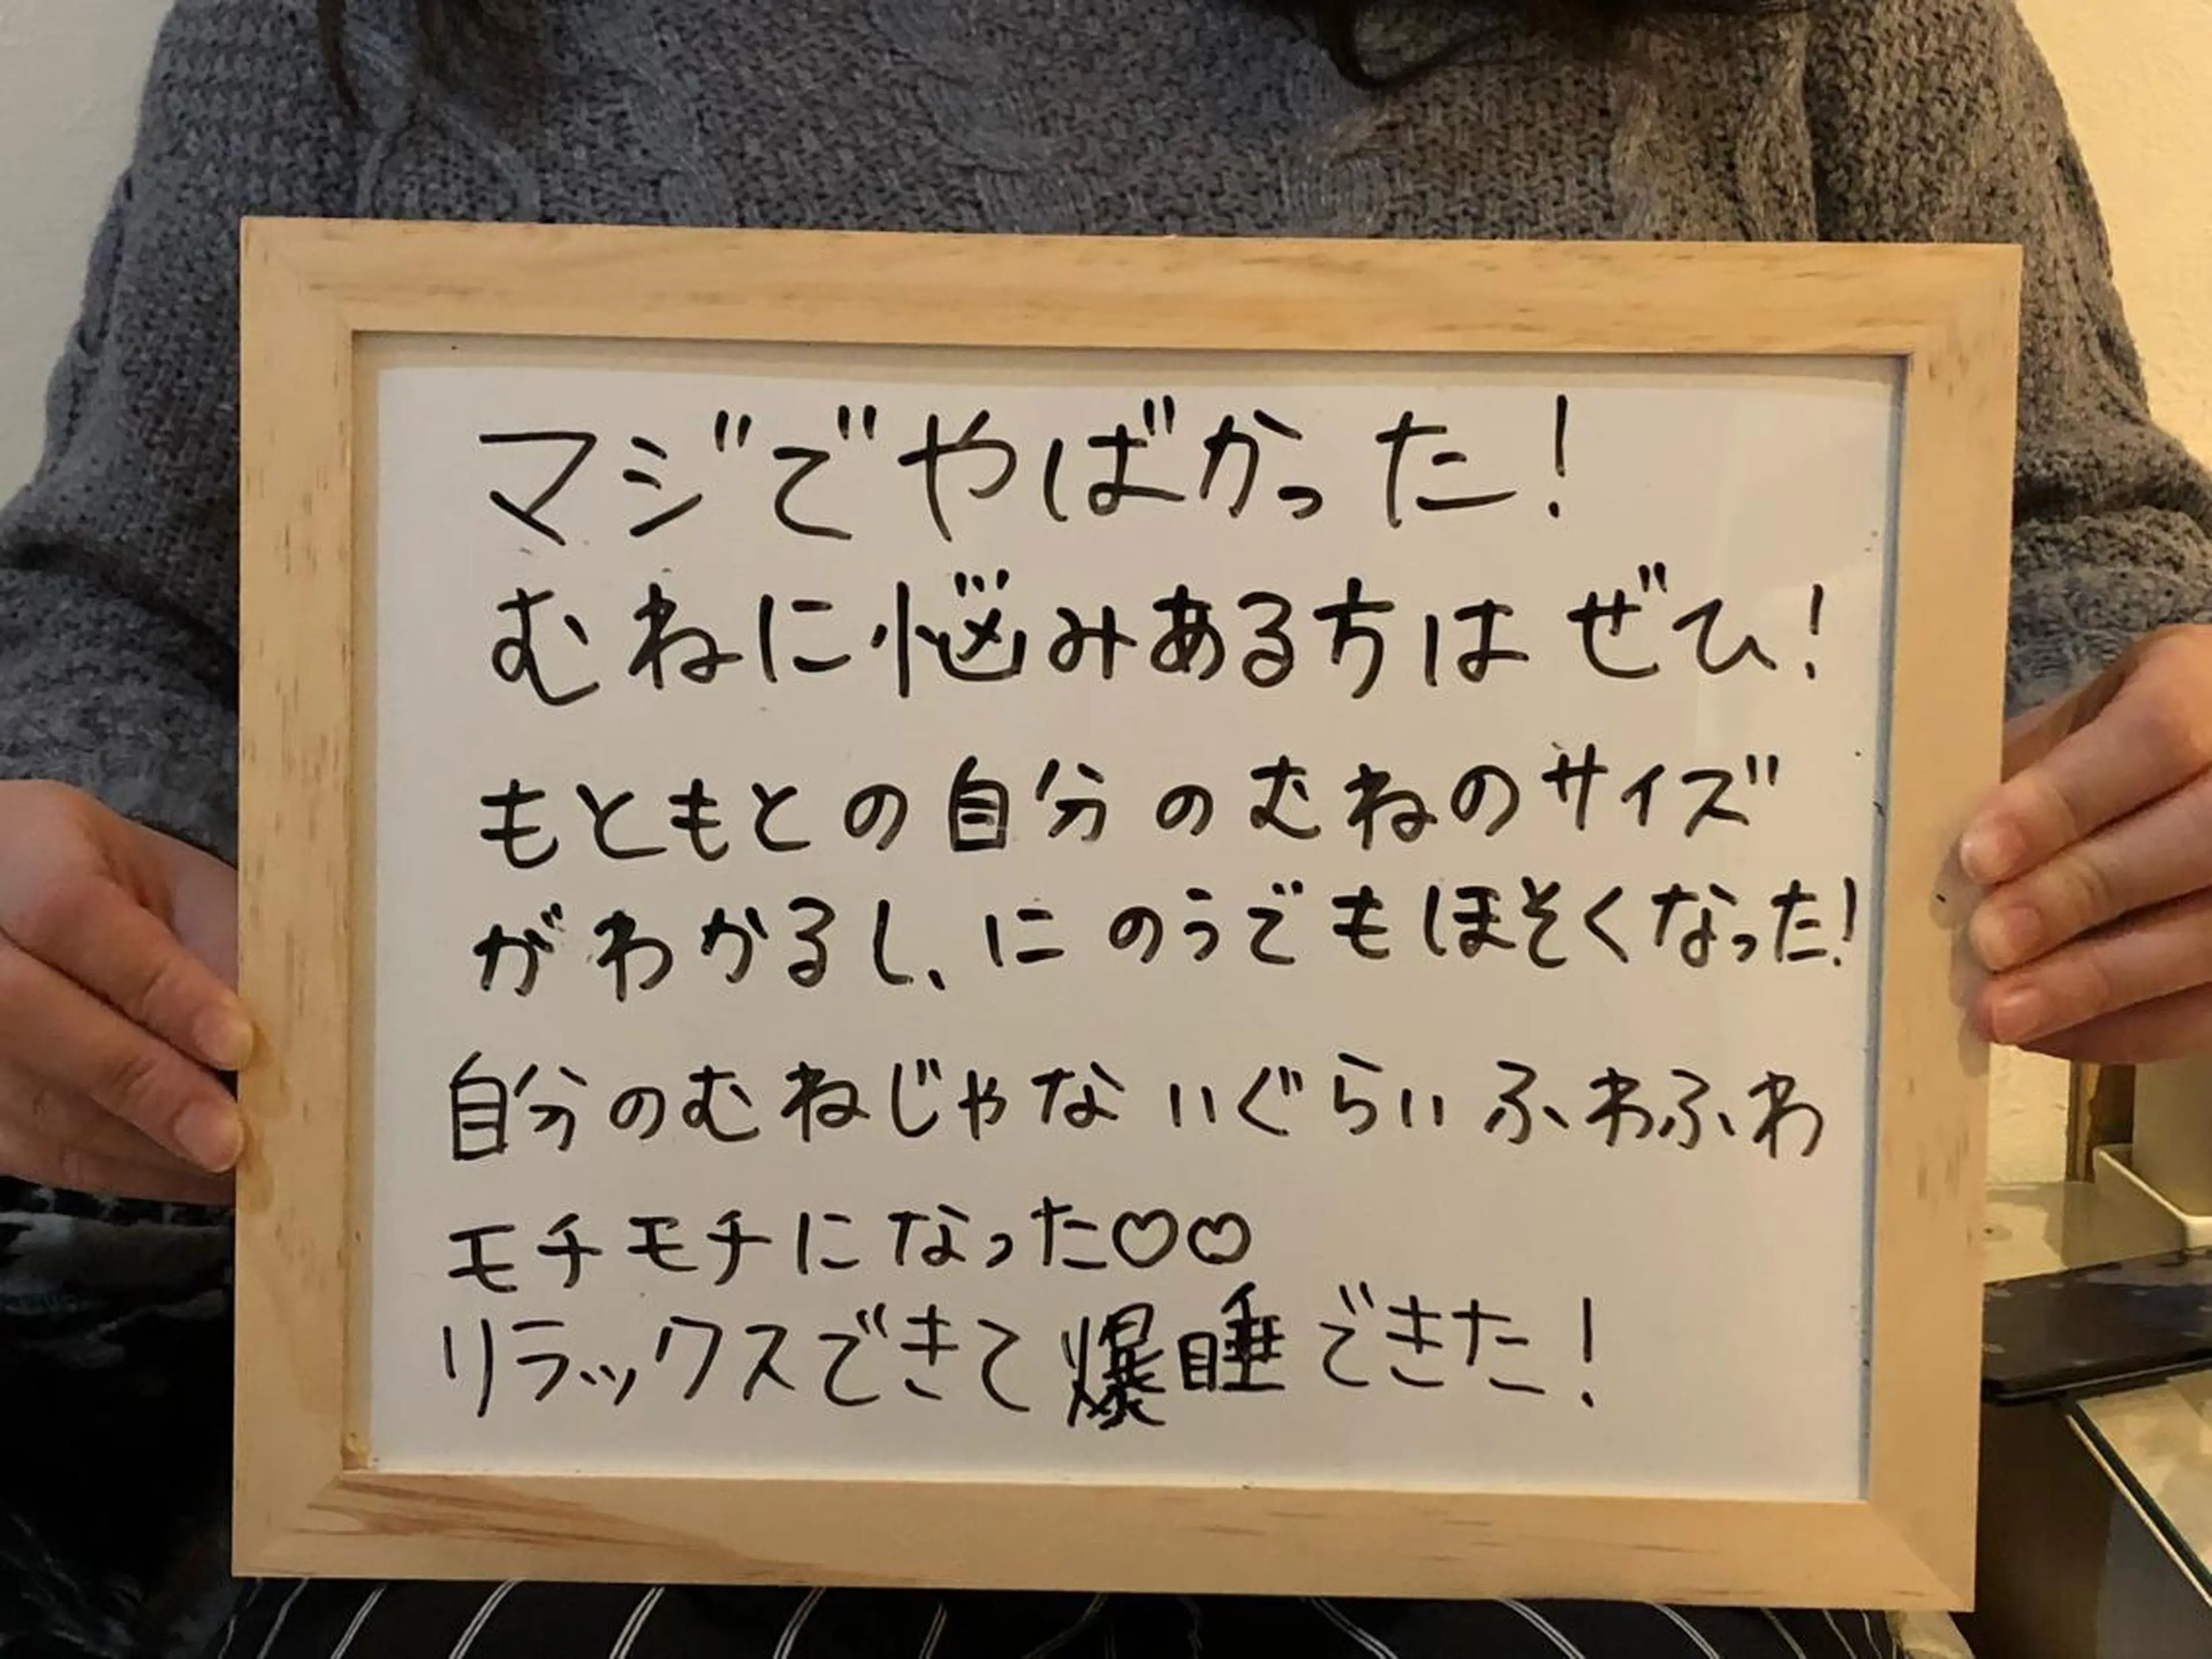 マジでやばかった!
むねに悩みある方は ぜひ!
もともとの自分のむねのサイズ
がわかるし、にのうでもほそくなった!
自分のむねじゃないぐらいふわふわ
モチモチになった♡♡
リラックスできて爆睡できた!